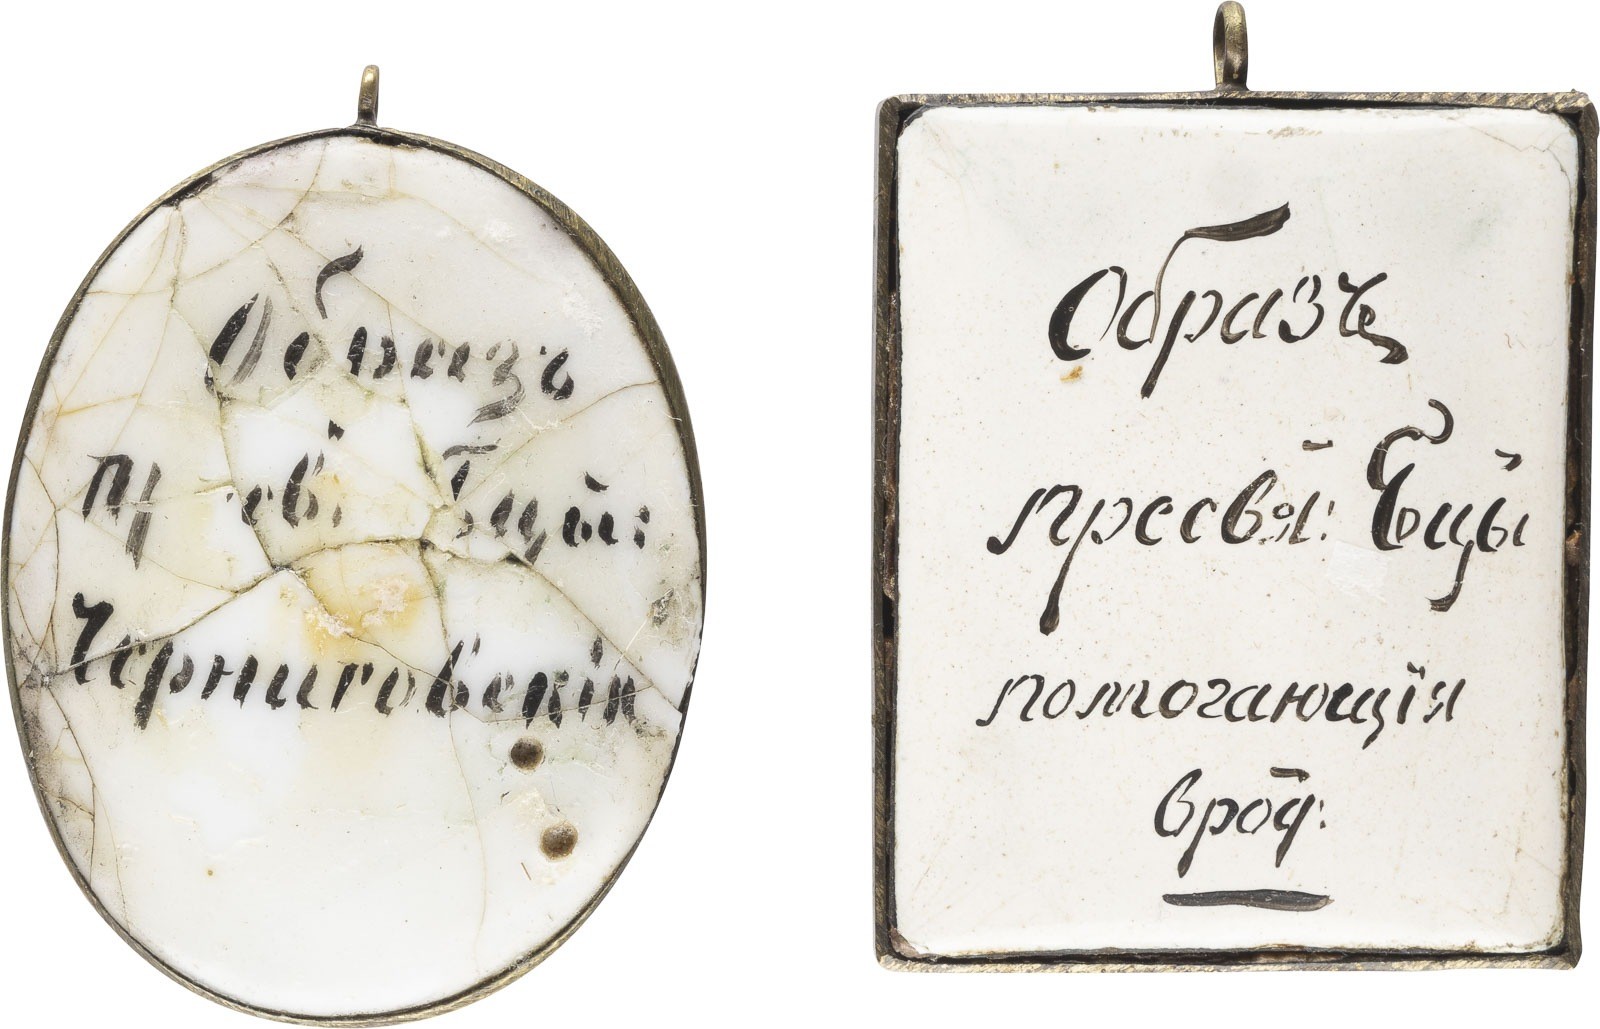 Образъ
св: Бцы:
Черниговскія
Образъ
пресвя: Бцы
помогающія
врод: